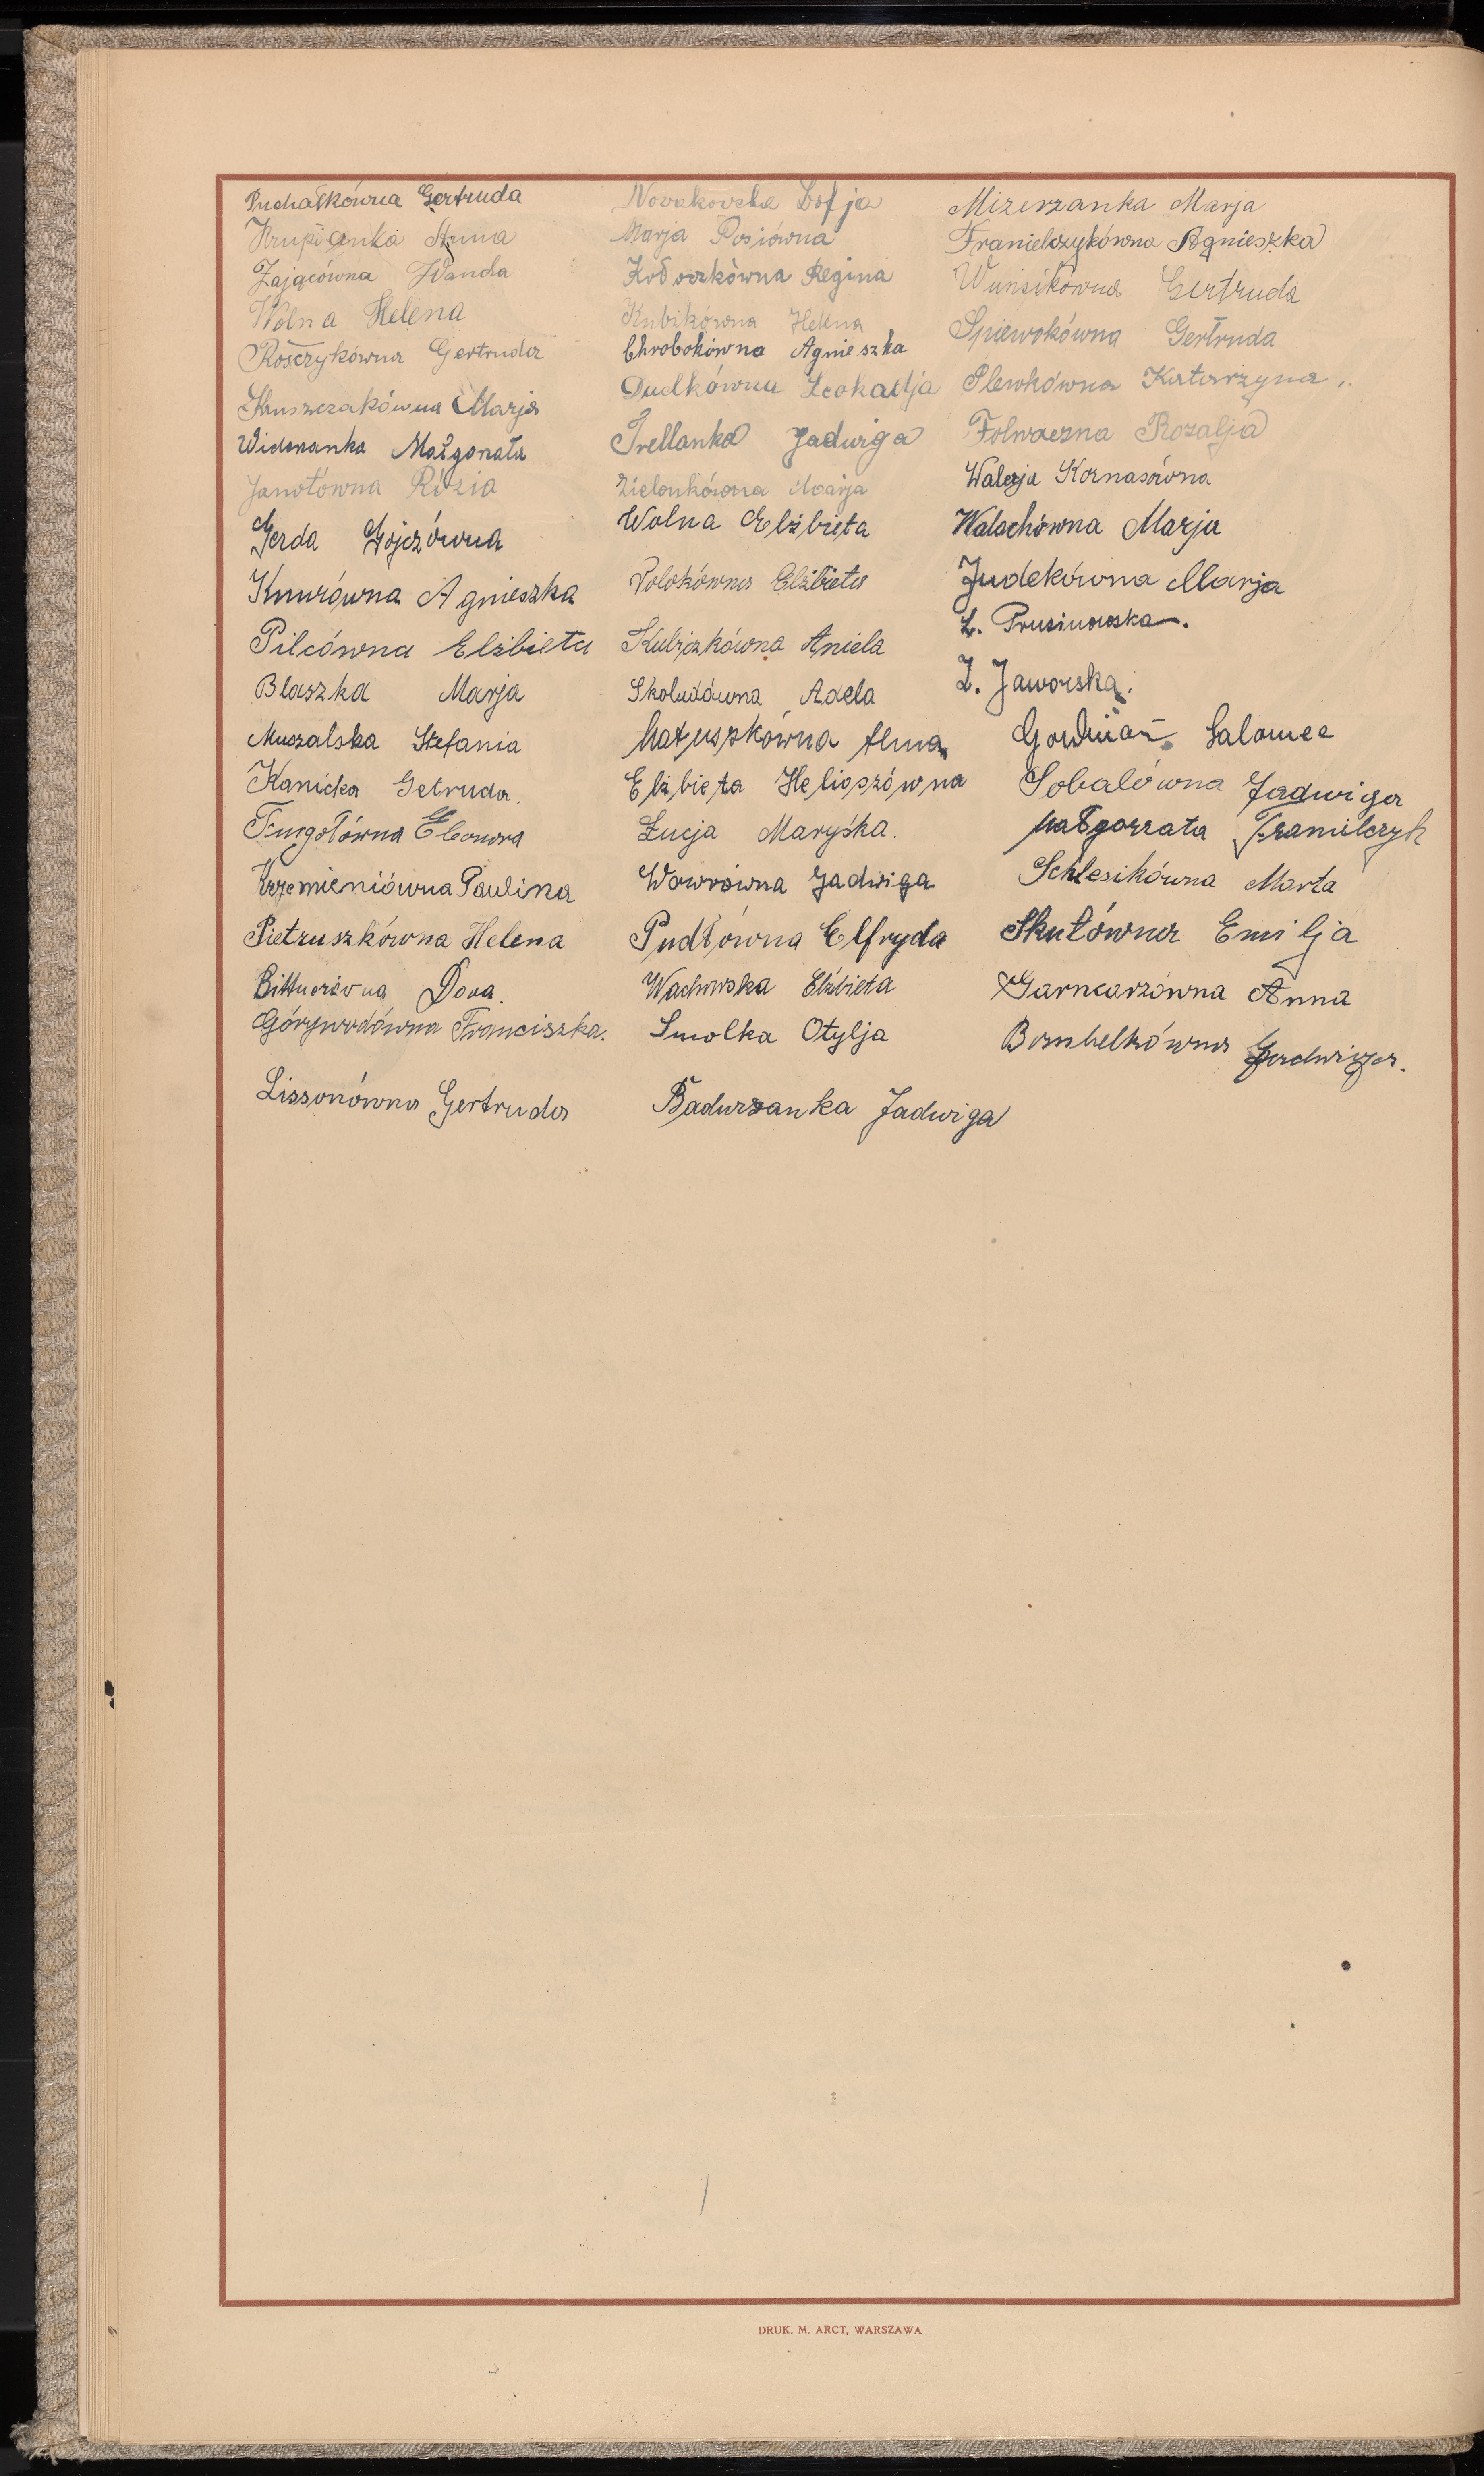 Puchałkówna Gertruda
Krupianka Anna
Zającówna Wanda
Wolna Helena
Rośczykówna Gertruda
Kruszczakówna Marja
Wideranka Małgorata
Janotówna Rózia
Gerda Gojczówna
Knurówna Agnieszka
Pilcówna Elżbieta
Blaszka Marja
Muszalska Stefania
Kanicka Getruda.
Eleonora
Krzemieniówna Paulina
Pietruszkówna Helena
Bittnerówna Dora.
Górywodówna Franciszka.
Lissonówna Gertruda
Novakovska Zofja
Marja Posiówna
Kołoczkówna Regina
Kubikówna Helena
Chrobokówna Agnieszka
Dudkówna Leokadja
Trellanka Jadwiga
Zielonkówna Marja
Wolna Elżbieta
Polokówna Elżbieta
Kubiczkówna Aniela
Skoludówna Adela
Matuszkówna Alma
Elżbieta Helioszówna
Łucja Maryśka.
Wowrówna Jadwiga
Pudłówna Elfryda
Wachowska Elżbieta
Smolka Otylja
Badurzanka Jadwiga
Mizerzanka Marja
Franielczykówna Agnieszka
Wunsikówna Gertruda
Spiewokówna Gertruda
Plewkówna Katarzyna
Folwaczna Rozalja
Walerja Kornasówna
Walachówna Marja
Judekówna Marja
Z. Prusinowska.
Z. Jaworska.
Salomea
Sobalówna Jadwiga
Małgorzata Franielczyk
Schlesikówna Marta
Skutówna Emilja
Garncarzówna Anna
Bombelkówna Jadwiga.
DRUK. M. ARCT, WARSZAWA